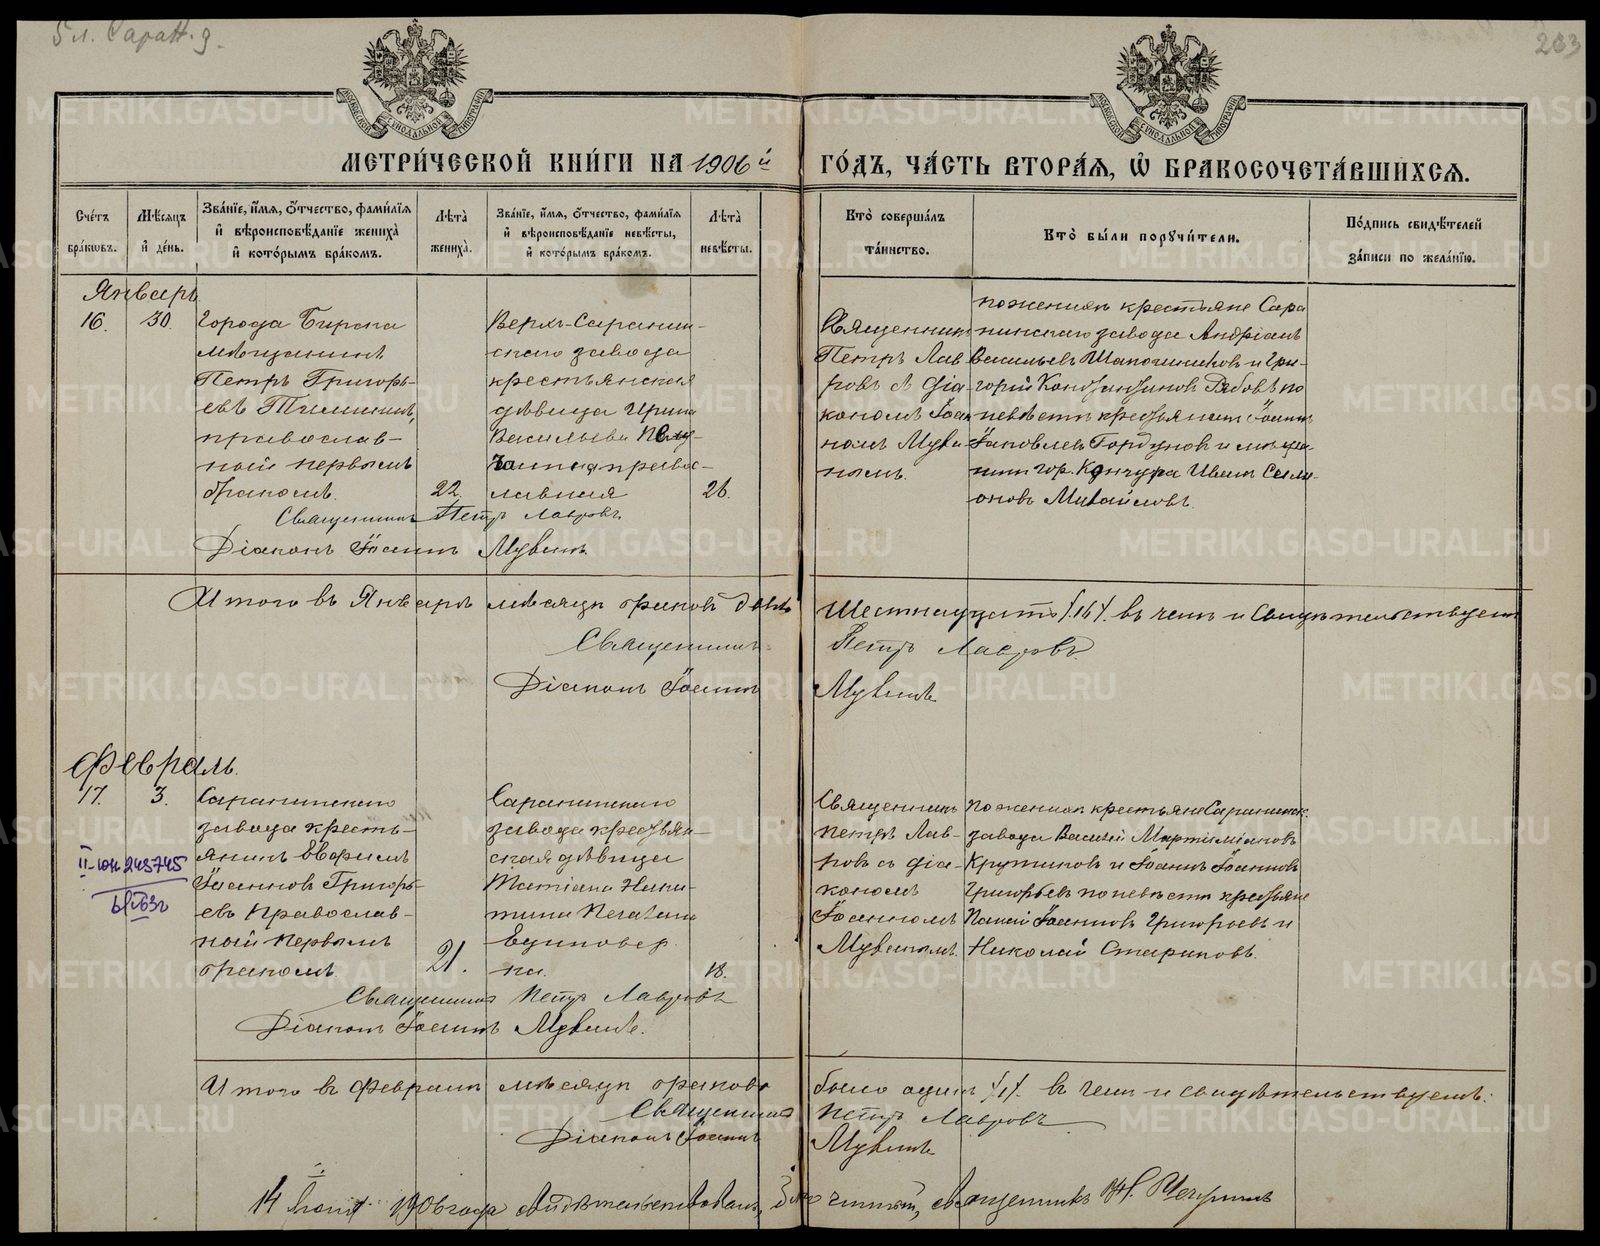 5 л. Саран. д.
203
МОСКОВСКОЙ СѴНОДАЛЬНОЙ ТИПОГРАФІИ
МОСКОВСКОЙ СѴНОДАЛЬНОЙ ТИПОГРАФІИ
МЕТРИ́ЧЕСКОЙ КНИ́ГИ НА 1906 й ГО́ДЪ, ЧА́СТЬ ВТОРА́Я, Ѽ БРАКОСОЧЕТА́ВШИХСЯ.
Сче́тъ бра́ковъ.
Мѣ́сяцъ и́ де́нь.
Зва́нїе, и́мя, ѻ́тчество, фами́лїя и́ вѣроисповѣ́данїе жениха̀ и́ кото́рымъ бра́комъ.
Лѣ́та̀ жениха̀.
Зва́нїе, и́мя, ѻ́тчество, фами́лїя и́ вѣроисповѣ́данїе невѣ́сты, и́ кото́рымъ бра́комъ.
Лѣ́та̀ невѣ́сты.
Кто̀ соверша́лъ та́инство.
Кто̀ бы́ли порꙋчи́тели.
По́дпись свидѣ́телей за́писи по жела́нїю.
Январь
16.
30.
Города Бирска
мѣщанинъ
Петръ Григорь-
евъ Тимикинъ,
православ-
ный первымъ
бракомъ.
22.
Верхъ-Саранин-
скаго завода
крестьянская
дѣвица Ирина
Васильева
православ-
лавная
26.
Священникъ
Петръ Лав-
ровъ съ діа-
кономъ Іоан-
номъ Мувы-
нымъ.
по женихѣ крестьяне Сара
нинскаго завода Андріанъ
Васильевъ Шапочниковъ и Гри-
горій Константиновъ Рябовъ по
невѣстѣ крестьянинъ Іоаннъ
Іаковлевъ Гордуновъ и мѣща-
нинъ гор. Кунгура Иванъ Семи-
оновъ Михайловъ.
Священникъ Петръ Лавровъ
Діаконъ Іоаннъ Мувинъ
Итого въ Январѣ мѣсяцѣ браковъ было Шестнадцать /16/. въ чемъ и свидѣтельствуемъ
Священникъ Петръ Лавровъ
Діаконъ Іоаннъ Мувинъ
Февраль.
17.
3.
II-ЮН 243745
Саранинскаго
завода кресть-
янинъ Евфимъ
Іоанновъ Григорь-
евъ Православ-
ный первымъ
бракомъ.
21.
Саранинскаго
завода крестьян-
ская дѣвица
Татіана Ники-
тина
Единовер.
ка.
18.
Священникъ
Петръ Лав-
ровъ съ діа-
кономъ
Іоанномъ
Мувинымъ.
по женихѣ крестьяне Саранинск.
завода Василій Мартиміановъ
Крутиковъ и Іоаннъ Іоанновъ
Григорьевъ по невѣстѣ крестьяне
Іоанновъ Григорьевъ и
Николай Стариковъ.
Священникъ Петръ Лавровъ
Діаконъ Іоаннъ Мувинъ.
Итого въ Февралѣ мѣсяцѣ браковъ было одинъ /1/. въ чемъ и свидѣтельствуемъ:
Священникъ Петръ Лавровъ
Діаконъ Іоаннъ Мувинъ
14 1906 года свидѣтельствовалъ, благочинный, священникъ
METRIKI.GASO-URAL.RU